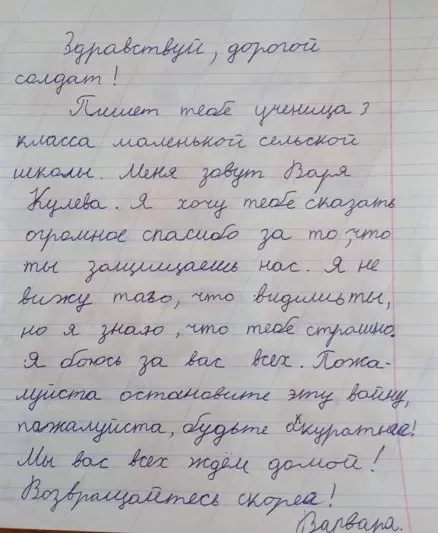 Здравствуй, дорогой
солдат!
Пишет тебе ученица 3
класса маленькой сельской
школы. Меня зовут Варя
Кулева. Я хочу тебе сказать
огромное спасибо за то, что
ты защищаешь нас. Я не
вижу того, что видишь ты,
но я знаю, что тебе страшно.
Я боюсь за вас всех. Пожа-
луйста остановите эту войну,
пажалуйста, будьте аккуратнеа!
Мы вас всех ждём домой!
Возвращайтесь скореа!
Варвара.